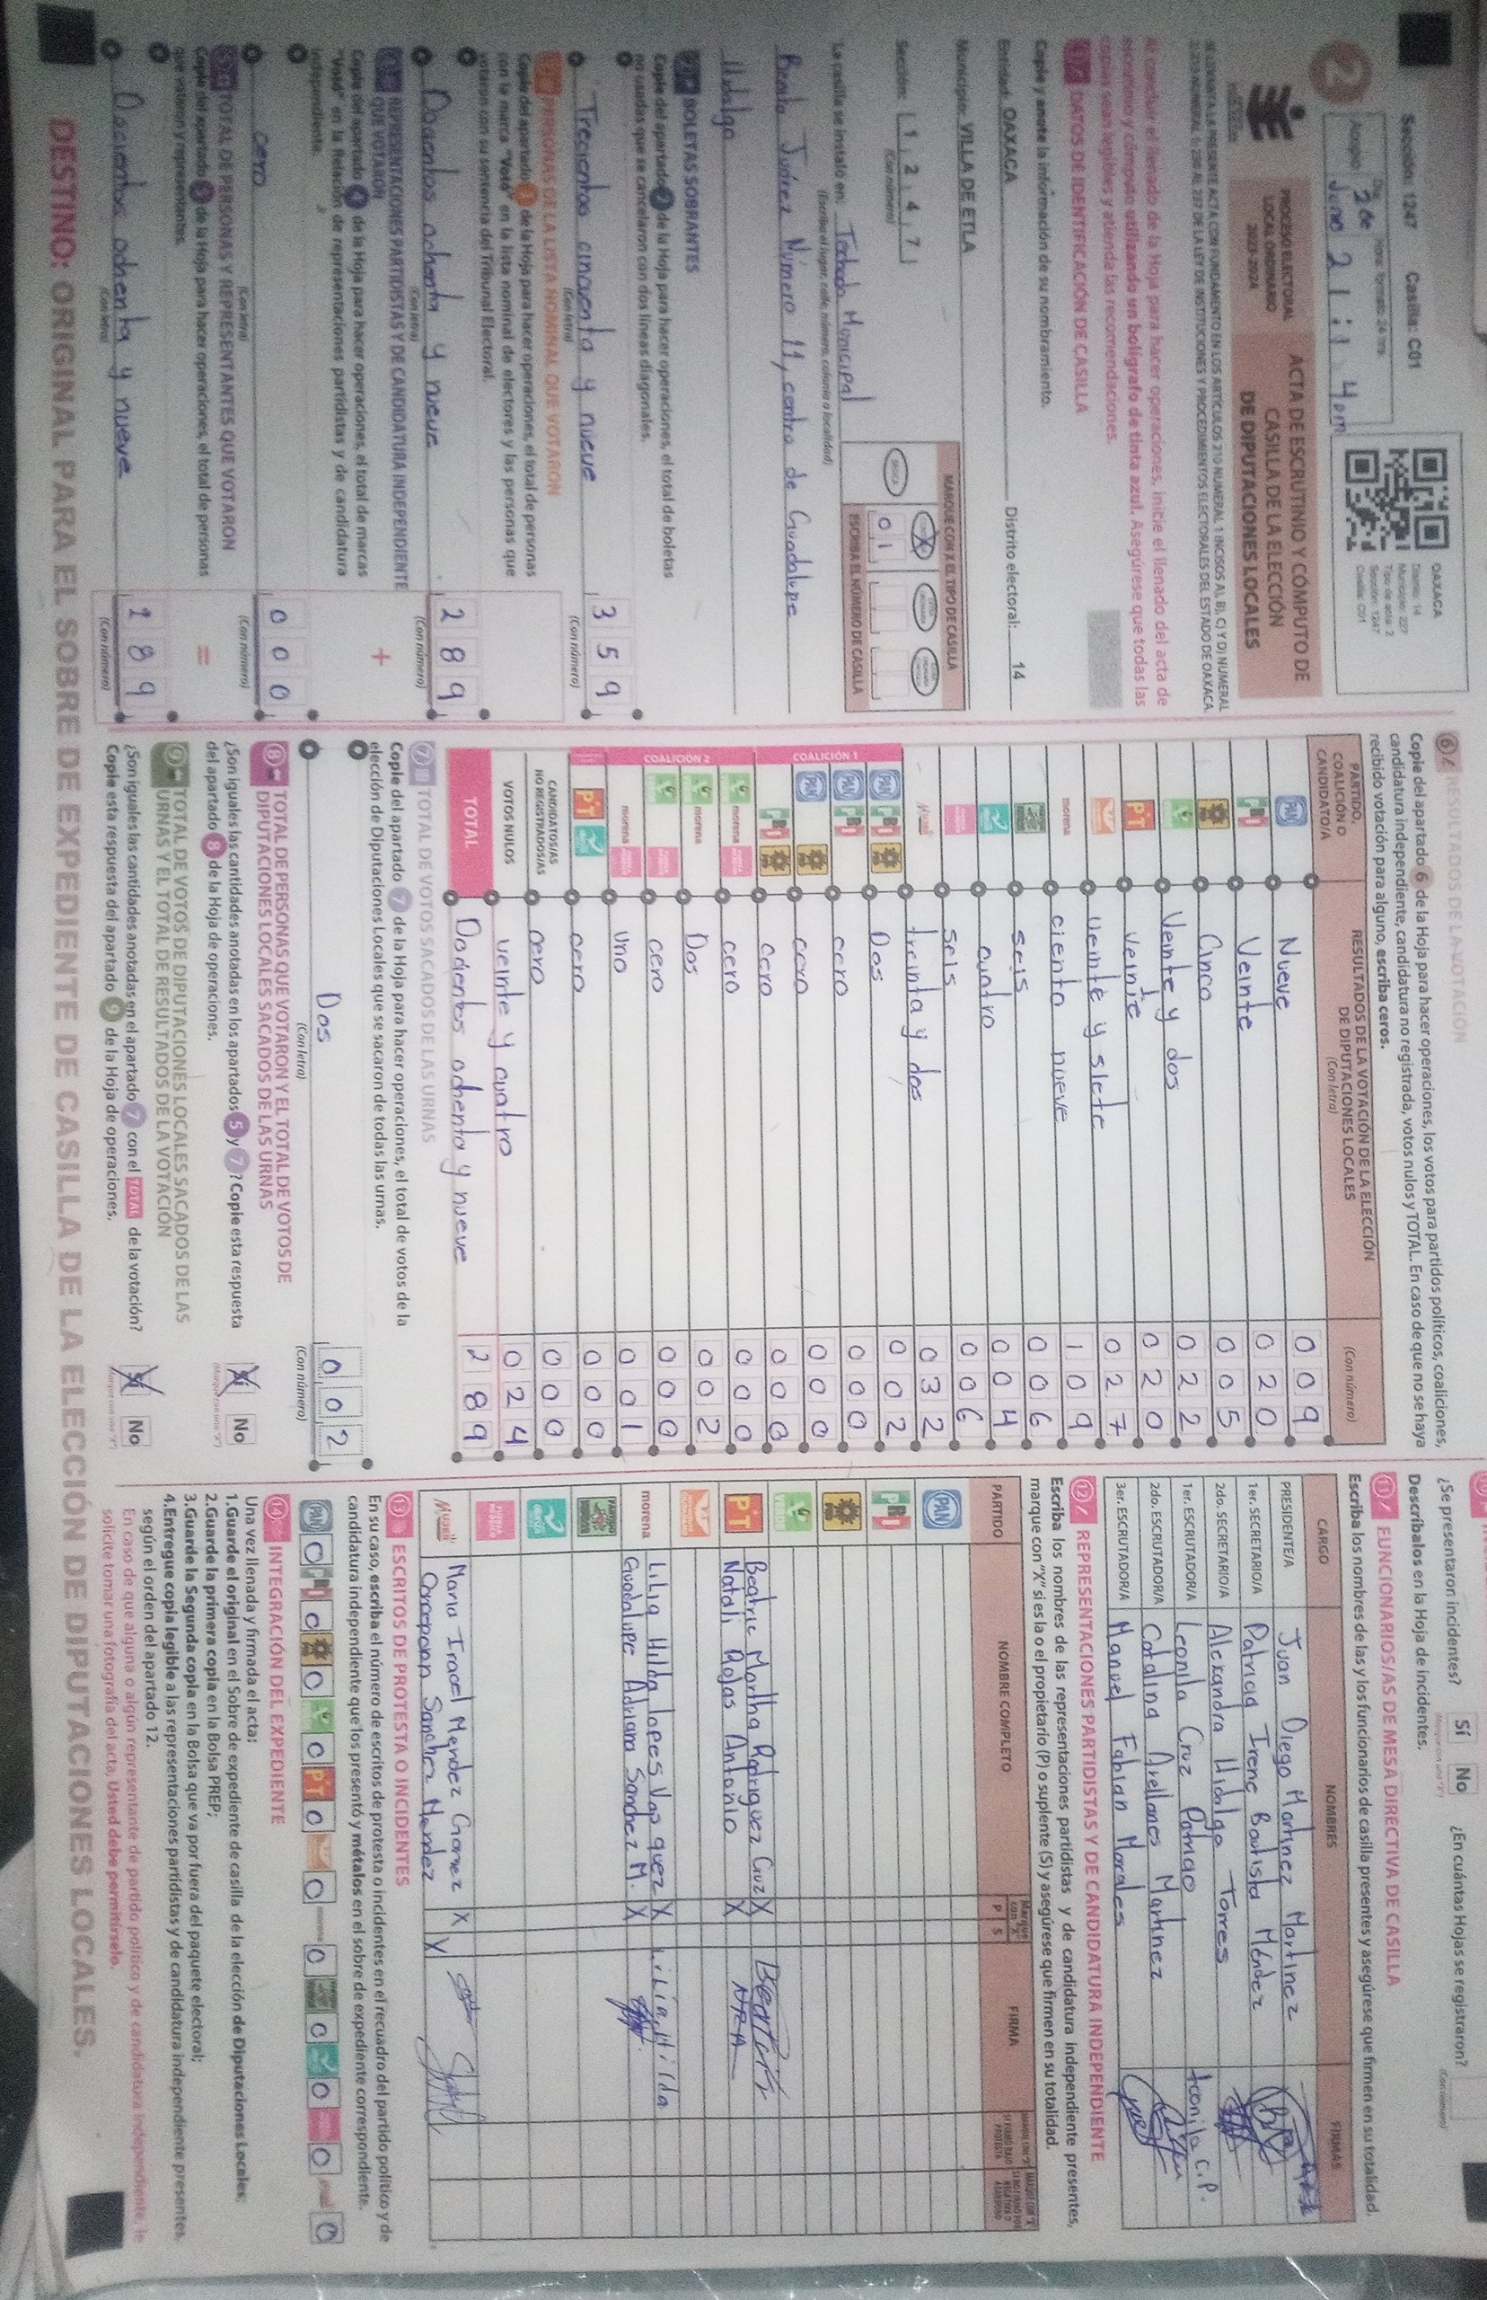 Sección: 1247 Casilla: C01
OAXACA
Distrito: 14
Municipio: 227
Tipo de acta: 2
Sección: 1247
Casilla: C01
2
2 de
Junio 21:14pm
PROCESO ELECTORAL
LOCAL ORDINARIO
2023-2024
ACTA DE ESCRUTINIO Y CÓMPUTO DE
CASILLA DE LA ELECCIÓN
DE DIPUTACIONES LOCALES
Al concluir el llenado de la Hoja para hacer operaciones, inicie el llenado del acta de
escrutinio y cómputo utilizando un bolígrafo de tinta azul. Asegúrese que todas las
copias sean legibles y atienda las recomendaciones.
DATOS DE IDENTIFICACIÓN DE CASILLA
Copie y anote la información de su nombramiento.
Entidad: OAXACA Distrito electoral: 14
Municipio: VILLA DE ETLA
Sección: 1247
(Con número)
MARQUE CON X EL TIPO DE CASILLA
X
01
ESCRIBA EL NÚMERO DE CASILLA
La casilla se instaló en: Tachada Municipal
(Escriba el lugar, calle, número, colonia o localidad)
Benito Juárez Número 11, centro de Guadalupe
Hidalgo
BOLETAS SOBRANTES
Copie del apartado 2 de la Hoja para hacer operaciones, el total de boletas
no usadas que se cancelaron con dos líneas diagonales.
Trecientos cincuenta y nueve 359
(Con letra) (Con número)
PERSONAS DE LA LISTA NOMINAL QUE VOTARON
Copie del apartado 3 de la Hoja para hacer operaciones, el total de personas
con la marca "Votó" en la lista nominal de electores y las personas que
votaron con su sentencia del Tribunal Electoral.
Docientos ochenta y nueve 289
(Con letra) (Con número)
REPRESENTACIONES PARTIDISTAS Y DE CANDIDATURA INDEPENDIENTE
QUE VOTARON
+
Copie del apartado 4 de la Hoja para hacer operaciones, el total de marcas
"Votó" en la Relación de representaciones partidistas y de candidatura
independiente.
cero 000
(Con letra) (Con número)
TOTAL DE PERSONAS Y REPRESENTANTES QUE VOTARON
=
Copie del apartado 5 de la Hoja para hacer operaciones, el total de personas
que votaron y representantes.
Docientos ochenta y nueve 289
(Con letra) (Con número)
6 RESULTADOS DE LA VOTACIÓN
Copie del apartado 6 de la Hoja para hacer operaciones, los votos para partidos políticos, coaliciones,
candidatura independiente, candidatura no registrada, votos nulos y TOTAL. En caso de que no se haya
recibido votación para alguno, escriba ceros.
PARTIDO,
COALICIÓN O
CANDIDATO/A
RESULTADOS DE LA VOTACIÓN DE LA ELECCIÓN
DE DIPUTACIONES LOCALES
(Con letra)
(Con número)
PAN Nueve 009
PRI Veinte 020
PRD Cinco 005
Veinte y dos 022
PT Veinte 020
veinte y siete 027
morena ciento nueve 109
seis 006
cuatro 004
seis 006
Mujer treinta y dos 032
COALICIÓN 1
PAN PRI PRD Dos 002
PAN PRI cero 000
PAN PRD cero 000
PRI PRD cero 000
COALICIÓN 2
morena cero 000
morena Dos 002
cero 000
morena uno 001
PT cero 000
CANDIDATOS/AS
NO REGISTRADOS/AS cero 000
VOTOS NULOS veinte y cuatro 024
TOTAL Docientos ochenta y nueve 289
7 TOTAL DE VOTOS SACADOS DE LAS URNAS
Copie del apartado 7 de la Hoja para hacer operaciones, el total de votos de la
elección de Diputaciones Locales que se sacaron de todas las urnas.
Dos 002
(Con letra) (Con número)
8 TOTAL DE PERSONAS QUE VOTARON Y EL TOTAL DE VOTOS DE
DIPUTACIONES LOCALES SACADOS DE LAS URNAS
¿Son iguales las cantidades anotadas en los apartados 5 y 7? Copie esta respuesta
del apartado 8 de la Hoja de operaciones.
Sí No
9 TOTAL DE VOTOS DE DIPUTACIONES LOCALES SACADOS DE LAS
URNAS Y EL TOTAL DE RESULTADOS DE LA VOTACIÓN
¿Son iguales las cantidades anotadas en el apartado 7 con el TOTAL de la votación?
Copie esta respuesta del apartado 9 de la Hoja de operaciones.
Sí No
¿Se presentaron incidentes? Sí No ¿En cuántas Hojas se registraron?
Descríbalos en la Hoja de incidentes.
11 FUNCIONARIOS/AS DE MESA DIRECTIVA DE CASILLA
Escriba los nombres de las y los funcionarios de casilla presentes y asegúrese que firmen en su totalidad.
CARGO NOMBRES FIRMAS
PRESIDENTE/A Juan Diego Martinez Martinez
1er. SECRETARIO/A Patricia Irene Bautista Méndez
2do. SECRETARIO/A Alexandra Hidalgo Torres
1er. ESCRUTADOR/A Leonila Cruz Leonila C.P.
2do. ESCRUTADOR/A Catalina Arellanes Martinez
3er. ESCRUTADOR/A Manuel Fabian Morales
12 REPRESENTACIONES PARTIDISTAS Y DE CANDIDATURA INDEPENDIENTE
Escriba los nombres de las representaciones partidistas y de candidatura independiente presentes,
marque con "X" si es la o el propietario (P) o suplente (S) y asegúrese que firmen en su totalidad.
PARTIDO NOMBRE COMPLETO P S FIRMA
PAN
PRI
PRD
PT Beatriz Martha Rodriguez Cruz X
Natali Rojas Antonio X NRA
morena Lilia Hilda Lopes Vasquez X Lilia Hilda
Guadalupe Adriana Sanchez M. X
Mujer Mario Irael Mendez Gomez X
Sanchez Mendez X
13 ESCRITOS DE PROTESTA O INCIDENTES
En su caso, escriba el número de escritos de protesta o incidentes en el recuadro del partido político y de
candidatura independiente que los presentó y métalos en el sobre de expediente correspondiente.
PAN 0 PRI 0 PRD 0 0 PT 0 0 0 0 0 0 0
14 INTEGRACIÓN DEL EXPEDIENTE
Una vez llenada y firmada el acta:
1.Guarde el original en el Sobre de expediente de casilla de la elección de Diputaciones Locales;
2.Guarde la primera copia en la Bolsa PREP;
3.Guarde la Segunda copia en la Bolsa que va por fuera del paquete electoral;
4.Entregue copia legible a las representaciones partidistas y de candidatura independiente presentes,
según el orden del apartado 12.
En caso de que alguna o algún representante de partido político y de candidatura independiente, le
solicite tomar una fotografía del acta, Usted debe permitírselo.
DESTINO: ORIGINAL PARA EL SOBRE DE EXPEDIENTE DE CASILLA DE LA ELECCIÓN DE DIPUTACIONES LOCALES.